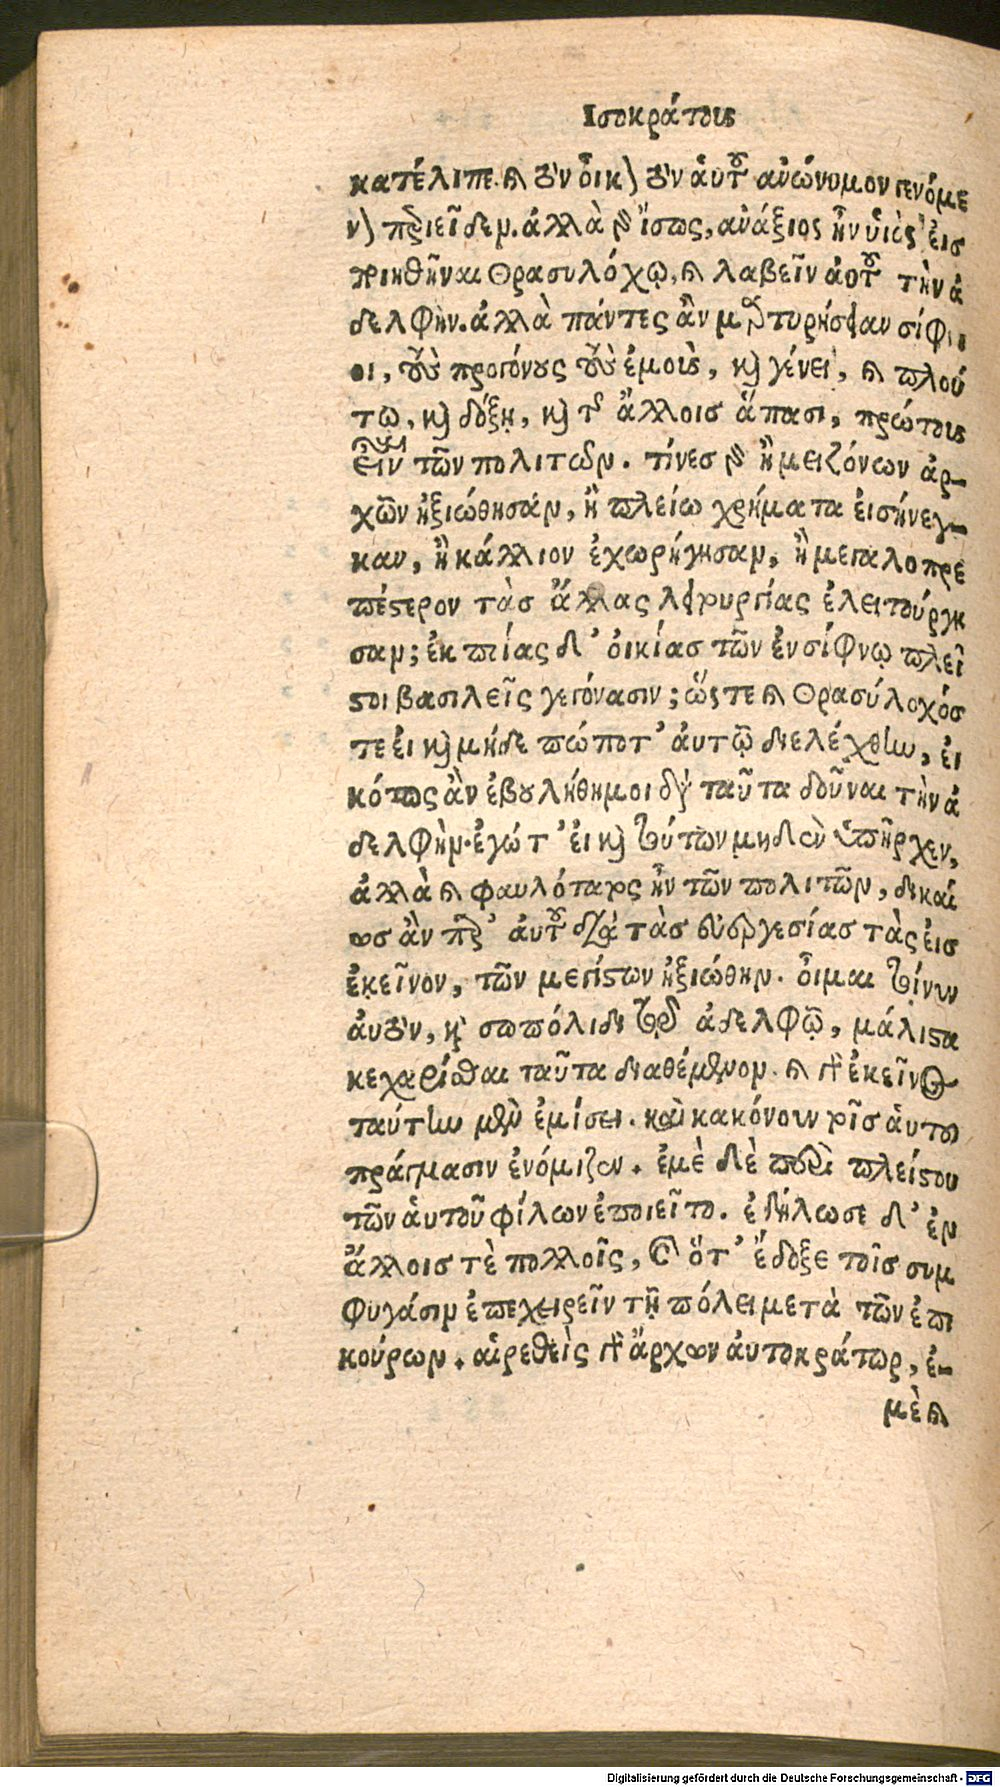 Ισοκράτους
κατέλιπε. καὶ τὸν οἶκον τὸν αὑτοῦ ἀνώνυμον γενόμε
νον περιεῖδεν. ἀλλὰ γὰρ ἴσως, ἀνάξιος ἦν ὑιὸς εἰσ
ποιηθῆναι Θρασυλόχῳ, καὶ λαβεῖν ἀυτοῦ τὴν ἀ
δελφήν. ἀλλὰ πάντες ἂν μαρτυρήσειαν σίφνι
οι, τοὺς προγόνους τοὺς ἐμοὺς, καὶ γένει, καὶ πλού
τῳ, καὶ δόξῃ, καὶ τοῖς ἄλλοισ ἅπασι, πρώτους
εἶναι τῶν πολιτῶν. τίνεσ γὰρ ἢ μειζόνων ἀρ-
χῶν ἠξιώθησαν, ἢ πλείω χρήματα ἐισήνεγ-
καν, ἢ κάλλιον ἐχωρήγησαν, ἢ μεγαλοπρε
πέστερον τὰσ ἄλλας λειτουργίας ἐλειτούργη
σαν; ἐκ ποίας δ' ὀικίασ τῶν ἐν σίφνῳ πλεῖ
στοι βασιλεῖς γεγόνασιν; ὥς τε καὶ Θρασύλοχόσ
τε ἐι καὶ μήδε πώποτ' ἀυτῷ διελέχθην, ἐι
κότως ἂν ἐβουλήθη μοι διὰ ταῦτα δοῦναι τὴν ἀ
δελφὴν. ἐγώ τ' ἐι καὶ τούτων μηδὲν ὑπῆρχεν,
ἀλλὰ καὶ φαυλότατος ἦν τῶν πολιτῶν, δικαί
ωσ ἂν παρ' ἀυτοῦ διὰ τὰσ ἐυεργεσίασ τὰς ἐισ
ἐκεῖνον, τῶν μεγίστων ἠξιώθην. ὄιμαι τοίνυν
ἀυτὸν, καὶ σωπόλιδι τῷ ἀδελφῷ, μάλιστα
κεχαρίσθαι ταῦτα διαθέμενον. καὶ γὰρ ἐκεῖνος
ταύτην μὲν ἐμίσει. καὶ κακόνουν τοῖσ ἁυτοῦ
πράγμασιν ἐνόμιζεν. ἐμὲ δὲ περὶ πλείστου
τῶν ἁυτοῦ φίλων ἐποιεῖτο. ἐδήλωσε δ' ἐν
ἄλλοισ τὲ πολλοῖς, καὶ ὅτ' ἔδοξε τοῖσ συμ
φυγάσιν ἐπιχειρεῖν τῇ πόλει μετὰ τῶν ἐπι
κούρων. αἱρεθεὶς γὰρ ἄρχων ἀυτοκράτωρ, ἐ-
μὲ καὶ
Digitalisierung gefördert durch die Deutsche Forschungsgemeinschaft - DFG